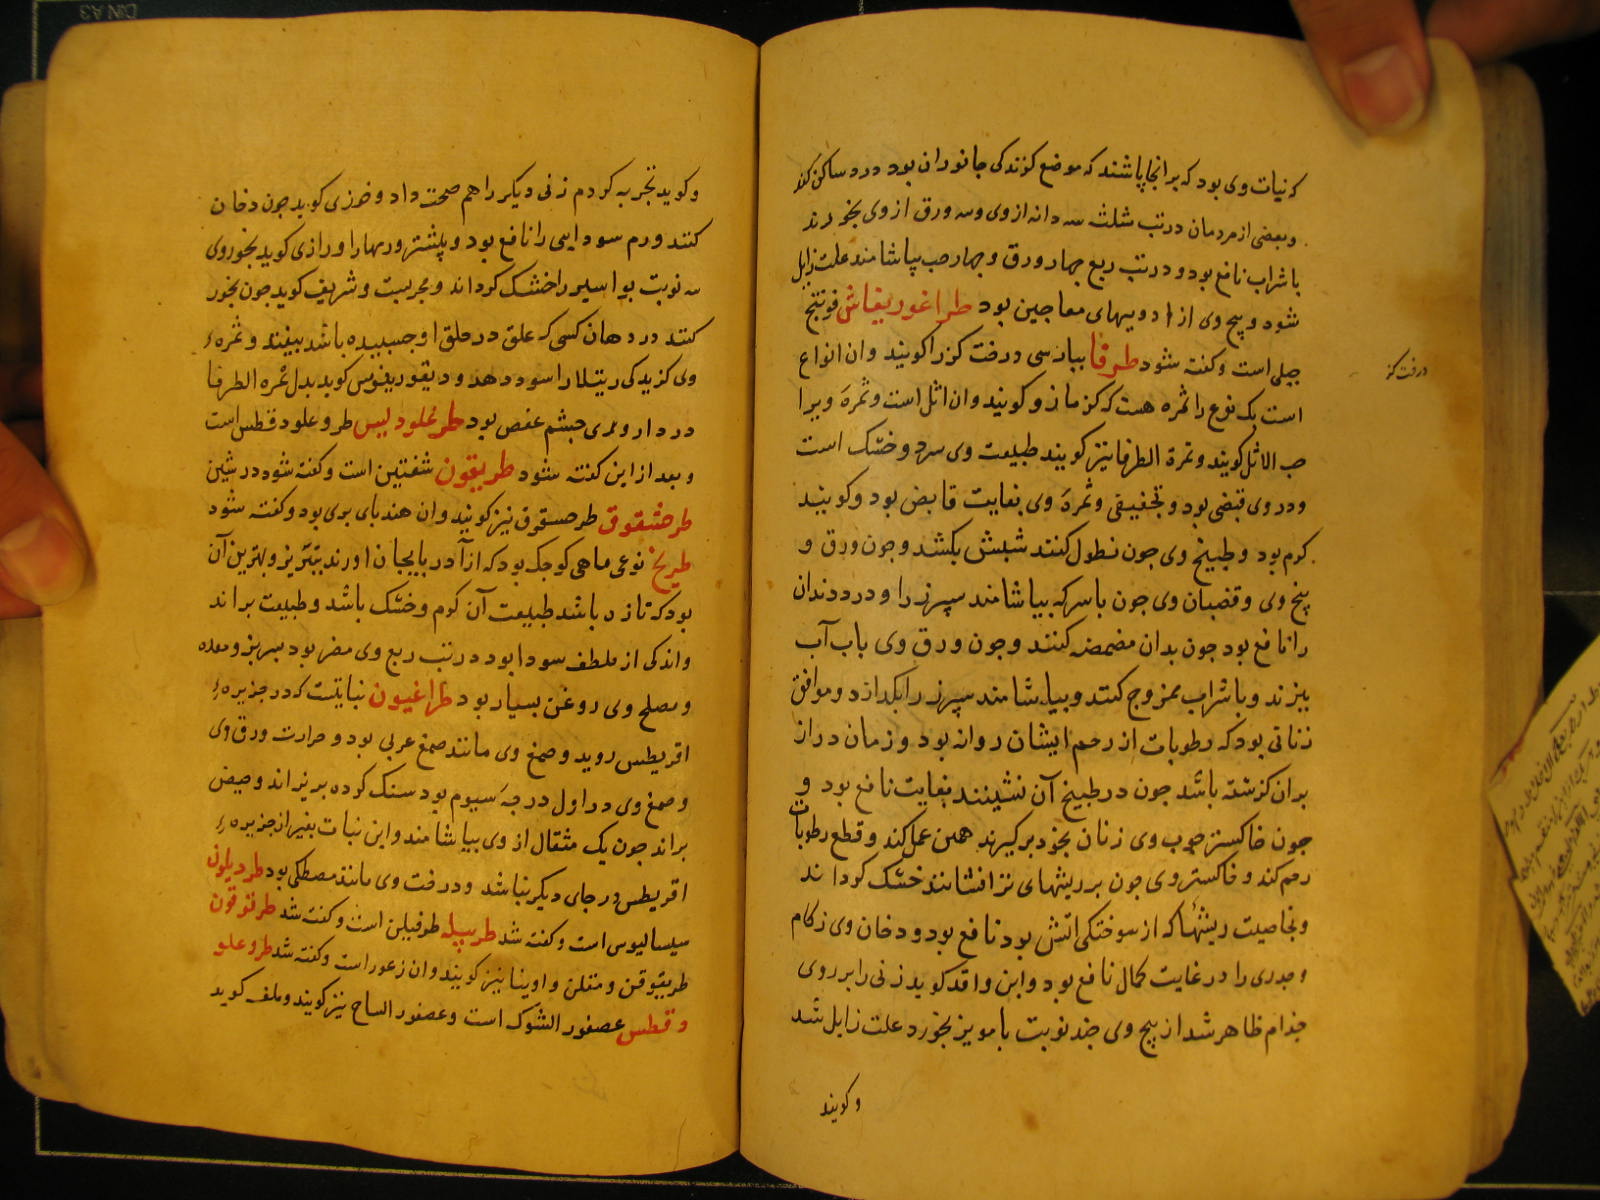 که نبات وی بود که برانجا پاشند که موضع گزندکی جانوران بود درد ساکن کند
و بعضی از مردمان در تب مثلث سه دانه از وی و سه ورق از وی بخورند
با شراب نافع بود و در تب ربع چهار ورق و چهار حب بیاشامند علت زایل
شود و بیخ وی از ادویهای معاجین بود طراغوریغانس فوتنج
جبلی است و کفته شود طرفا بپارسی درخت کز را کویند و ان انواع
است یک نوع را ثمره هست که کزمازو کویند و ان اثل است و ثمره ویرا
حب الاثل کویند و ثمرة الطرفا نیز کویند طبیعت وی سرد و خشک است
و در وی قبضی بود و تجفیفی و ثمره وی بغایت قابض بود و کویند
کرم بود و طبیخ وی جون نطول کنند شپش بکشد و جون ورق و
بیخ وی و قضبان وی جون با سرکه بیاشامند سپرز را و درد دندان
را نافع بود جون بدان مضمضه کنند و جون ورق وی باب آب
بپزند و با شراب ممزوج کنند و بیاشامند سپرز را بکدازد و موافق
زنانی بود که رطوبات از رحم ایشان روانه بود و زمان دراز
بران کزشته باشد جون در طبیخ آن نشینند بغایت نافع بود و
جون خاکستر چوب وی زنان بخود برکیرند همین عمل کند و قطع رطوبات
رحم کند و خاکستر وی جون بر ریشهای تر افشانند خشک کرداند
و بخاصیت ریشها که از سوختکی اتش بود نافع بود و دخان وی زکام
و جدری را در غایت کمال نافع بود و ابن وافد کوید زنی را بر روی
جذام ظاهر شد از بیخ وی جند نوبت با مویز بخورد علت زایل شد
و کویند
درخت کز
و کوید تجربه کردم زنی دیکر را هم صحت داد و خوزی کوید جون دخان
کنند ورم سودایی را نافع بود و پلشتر ورمها را و رازی کوید بخور وی
سه نوبت بواسیر را خشک کرداند و مجربست و شریف کوید جون بخور
کنند در دهان کسی که علق در حلق او جسبیده باشد بیفتد و ثمره
وی کزیدکی رتیلا را سود دهد و دیقوریدوس کوید بدل ثمره الطرفا
در داروی جشم عفص بود طرغلودیس طروغلود قطس است
و بعد از این کفته شود طریفون شفنین است و کفته شود در شین
طرخشقوق طرحسقوق نیز کویند و ان هندبای بری بود و کفته شود
طریخ نوعی ماهی کوجک بود که از آذربایجان اورند بتبریز و بهترین آن
بود که تازه باشد طبیعت آن کرم و خشک باشد و طبیعت براند
و اندکی از ملطف سودا بود در تب ربع وی مضر بود بسپرز و معده
و مصلح وی روغن بسیار بود طراغیون نباتیست که در جزیره
اقریطس روید و صمغ وی مانند صمغ عربی بود و حرارت ورق وی
و صمغ وی در اول درجه سیوم بود سنک کرده بریزاند و حیض
براند جون یک مثقال از وی بیاشامند و این نبات بغیر از جزیره
اقریطس در جای دیکر نباشد و درخت وی مانند مصطکی بود طردیلون
سیسالیوس است و کفته شد طریبله طرفیلن است و کفته شد طرنوقون
طریقوقن و متلن و اوینا نیز کویند و ان زعور است و کفته شد طروعلو
د قطس عصفور الشوک است و عصفور الساج نیز کویند و ملف کوید